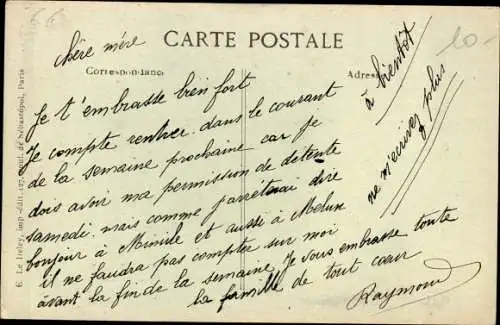 CARTE POSTALE
Correspondance
Adresse
chère mère
Je t'embrasse bien fort
Je compte rentrer dans le courant
de la semaine prochaine car je
dois avoir ma permission de détente
samedi. mais comme dire
bonjour à et aussi à Melun
il ne faudra pas compter sur moi
avant la fin de la semaine. Je vous embrasse toute
la famille de tout cœur
Raymond
à bientôt
ne m'écrivez plus
10-
6. Le imp.-édit., 127, boul. de Sébastopol, Paris